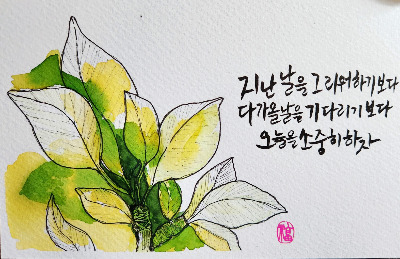 지난 날을 그리워하기보다
다가올날을 기다리기보다
오늘을 소중히하자